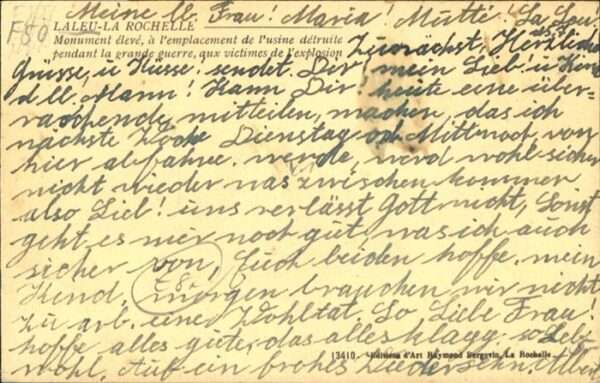 Meine ll. Frau! Maria! Mutti! La Lou.
F80
LALEU-LA ROCHELLE
Monument élevé, à l'emplacement de l'usine détruite
pendant la grande guerre, aux victimes de l'explosion
Zunächst, Herzliche
Grüsse, u Küsse, sendet Dir mein Lieb! u Kind
d ll. Mann! Kann Dir heute eine über-
raschende mitteilen, machen, das ich
nächste Woche Dienstag od Mittwoch, von
hier abfahre. werde, werd wohl sicher
nicht wieder was zwischen kommen
also Lieb! uns verlässt Gott nicht, Sonst
geht es mir noch gut, was ich auch
sicher von, Euch beiden hoffe, mein
Kind, morgen brauchen wir nicht
zu arb. einer Wohltat. So Liebe Frau!
hoffe alles gute, das alles klapp. so Lebe
13410. - Editions d'Art Raymond Bergevin, La Rochelle
wohl, Auf ein frohes Wiedersehn. Albert